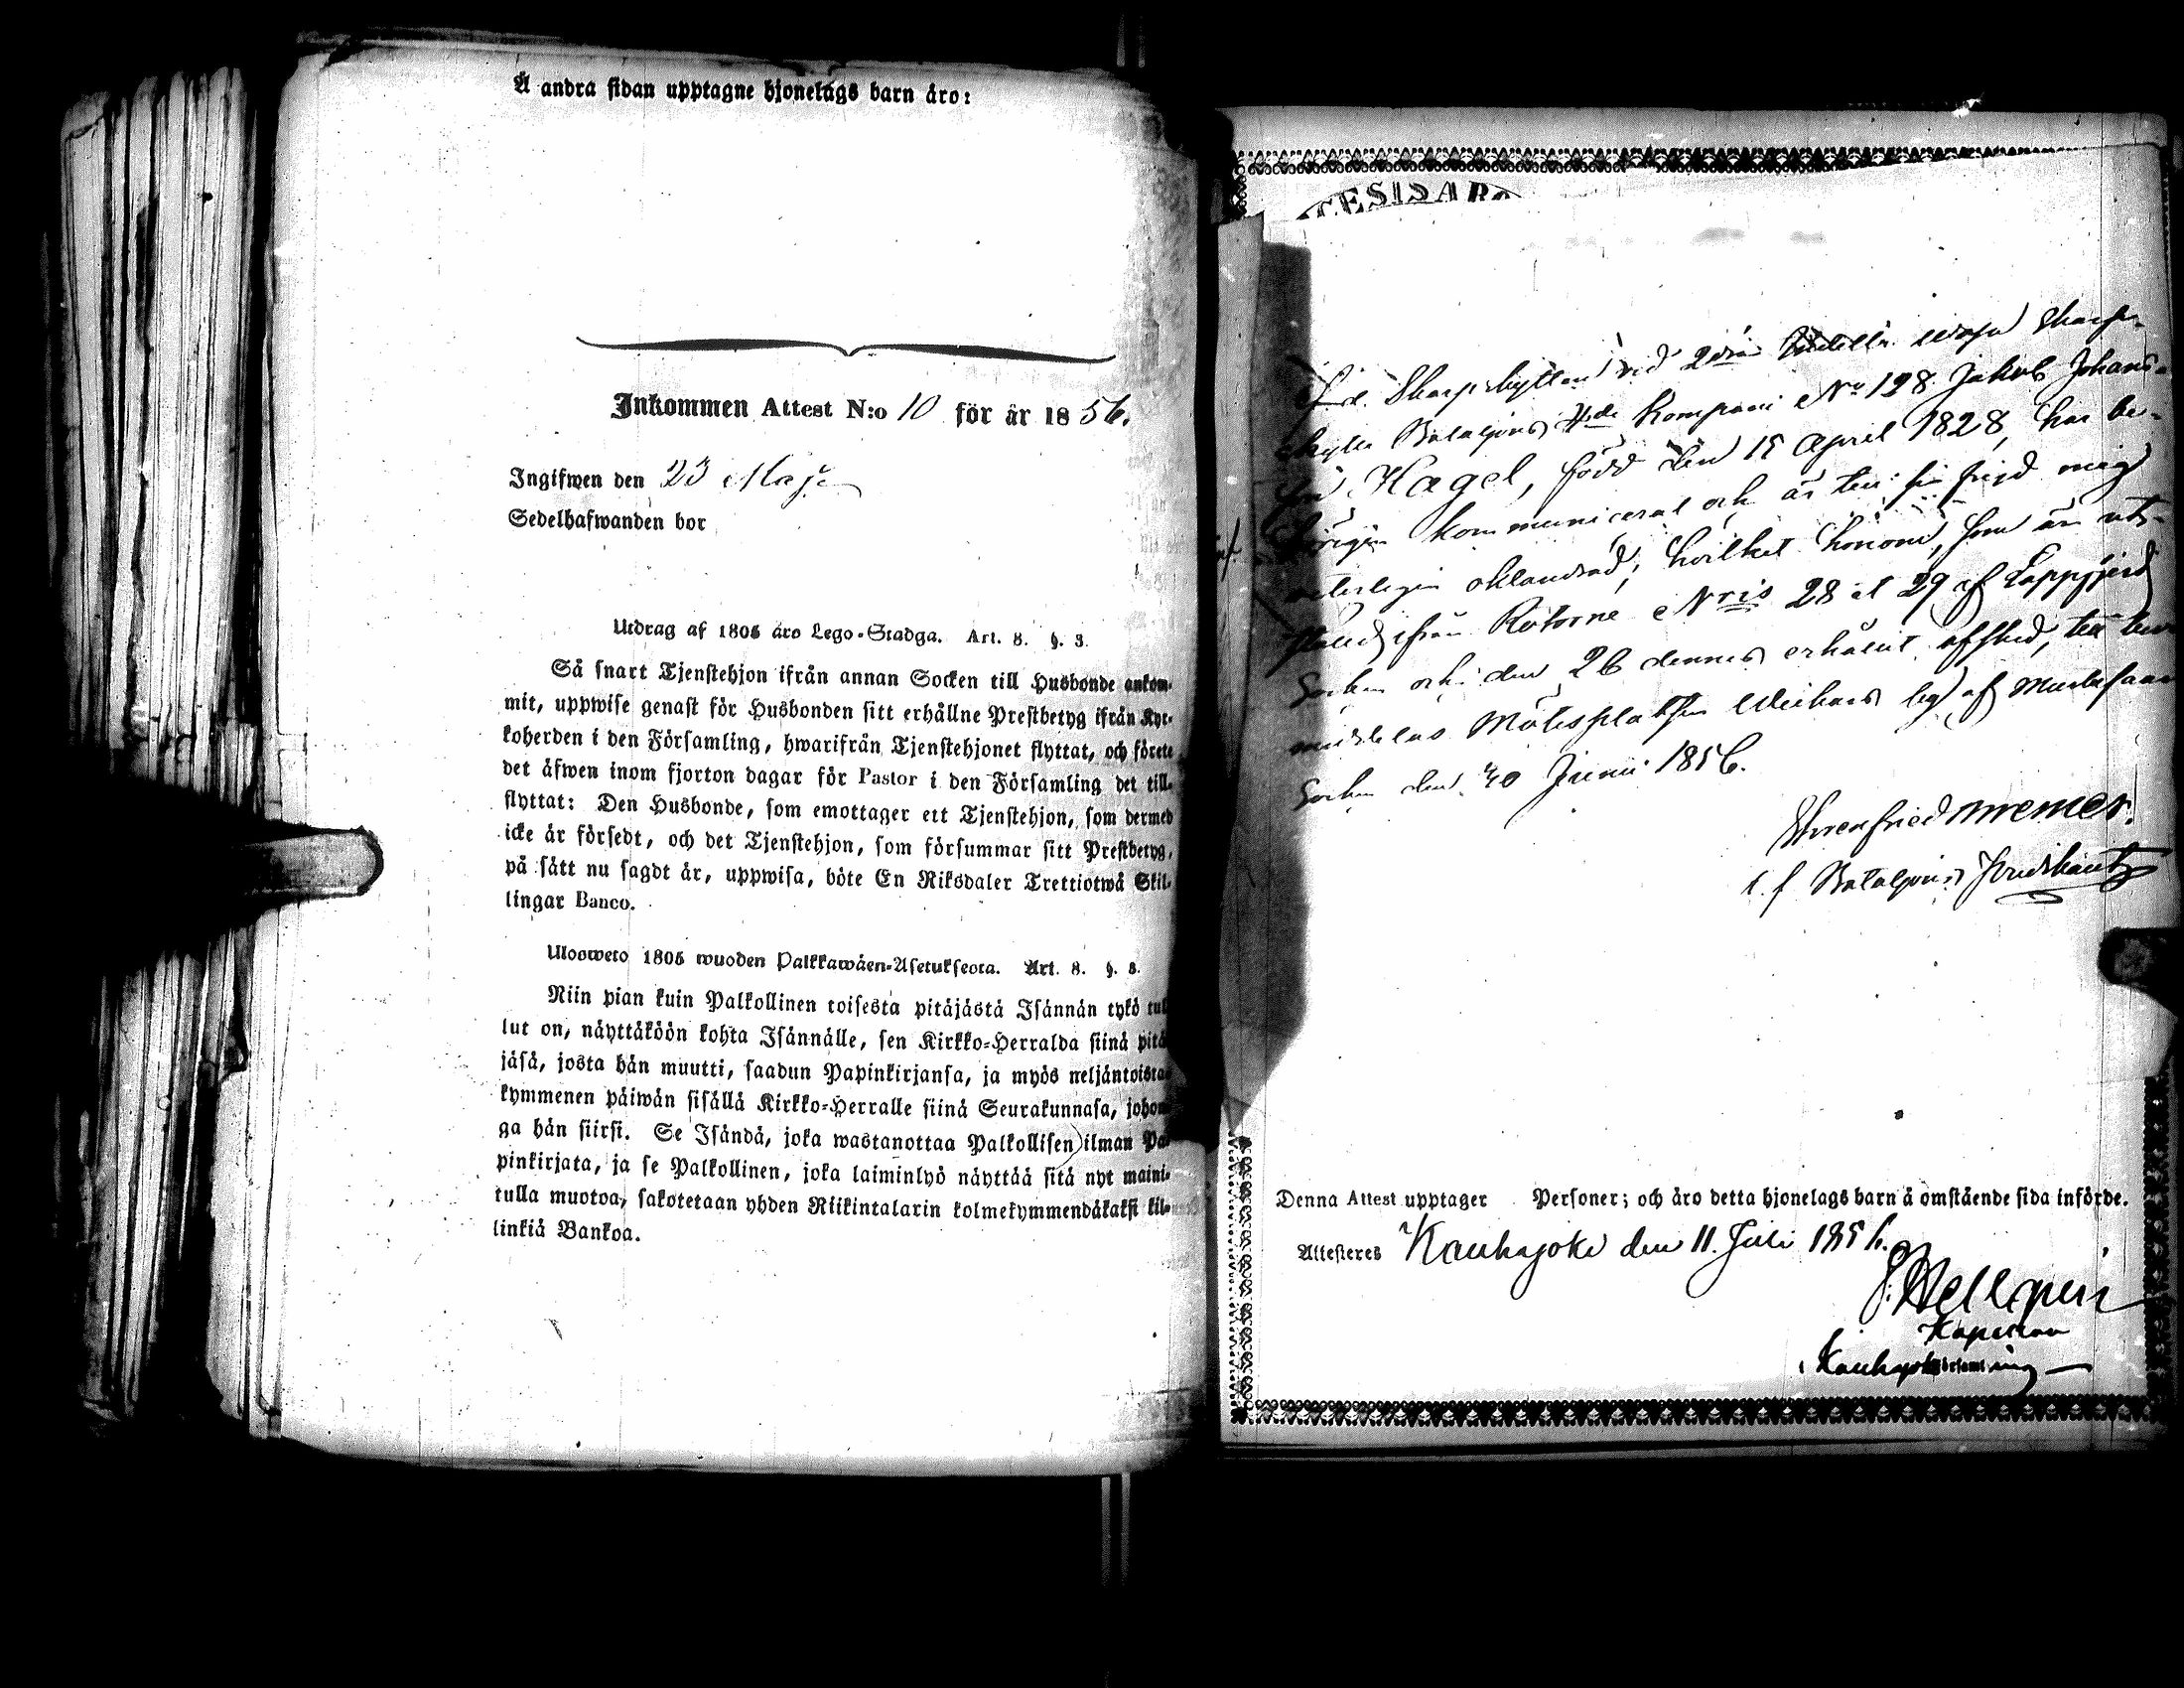 Å andra sidan upptagne hjonelags barn äro:
Inkommen Attest N:o 10 för år 1856.
Ingifwen den 23 Maji
Sedelhafwanden bor
Utdrag af 1805 års Lego-Stadga. Art. 8. §. 3.
Så snart Tjenstehjon ifrån annan Socken till Husbonde ankom-
mit, uppwise genast för Husbonden sitt erhållne Prestbetyg ifrån Kyr-
koherden i den Församling, hwarifrån Tjenstehjonet flyttat, och förete
det äfwen inom fjorton dagar för Pastor i den Församling det till-
flyttat: Den Husbonde, som emottager ett Tjenstehjon, som dermed
icke är försedt, och det Tjenstehjon, som försummar sitt Prestbetyg,
på sätt nu sagdt är, uppwisa, böte En Riksdaler Trettiotwå Skil-
lingar Banco.
Ulosweto 1805 wuoden Palkkawäen-Asetuksesta. Art. 8. §. 3.
Niin pian kuin Palkollinen toisesta pitäjästä Isännän tykö tul
lut on, näyttäköön kohta Isännälle, sen Kirkko-Herralda siinä pitä
jäsä, josta hän muutti, saadun Papinkirjansa, ja myös neljäntoista-
kymmenen päiwän sisällä Kirkko-Herralle siinä Seurakunnasa, johon
ga hän siirsi. Se Isändä, joka wastanottaa Palkollisen ilman Pa
pinkirjata, ja se Palkollinen, joka laiminlyö näyttää sitä nyt maini-
tulla muotoa, sakotetaan yhden Riikintalarin kolmekymmendäkaksi kil-
linkiä Bankoa.
F.d. Skarpskytten vid 2dra Indelta Wasa Skarp-
skytte Bataljons 4de Kompani No 128 Jakob Johans-
son Hagel, född den 15 April 1828, har be-
hörigen kommunicerat och är till sin frejd mig
veterligen oklandrad, hvilket honom, som är ut-
ifrån Rotorne Nris 28 et 29 af Lappfjerd
Socken och den 26 dennes erhållit afsked, till bevis
meddelas Mötesplatsen af Mustasaari
Socken den 30 Junii 1856.
Ehrenfried
t. f. Bataljons
Denna Attest upptager Personer; och äro detta hjonelags barn å omstående sida införde.
Attesteres Kauhajoki den 11. Juli 1856.
Kapellan
i Kauhajoki Församling